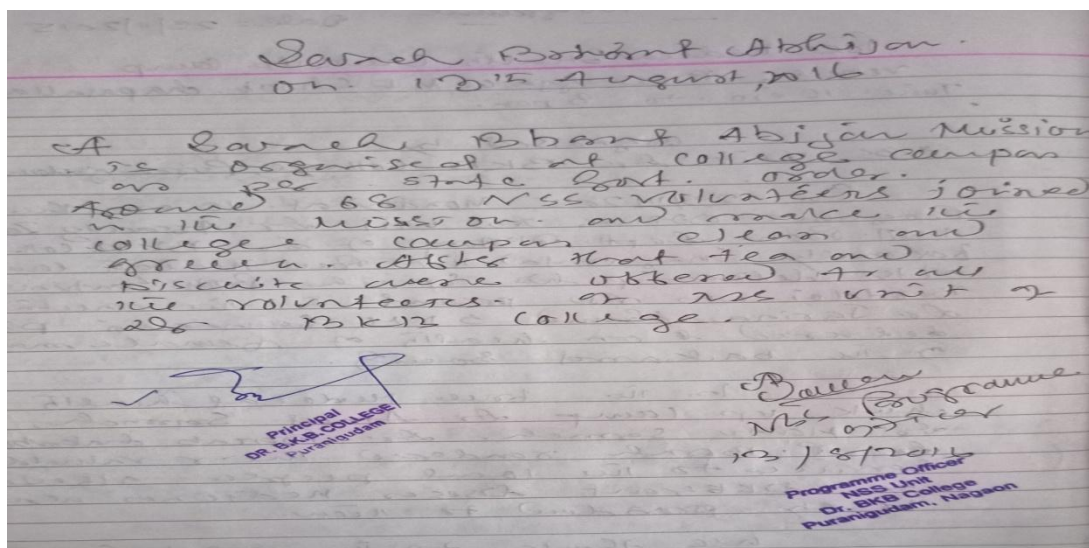 Savach Bharat Abhijan.
on 13th August, 2016
A Savach Bharat Abijan Mission
is organised at college campas
as per state Govt. order.
Around 68 NSS volunteers joined
in the Mission and make the
college campas clean and
green. After that tea and
biscuits were offered to all
the volunteers. of NSS unit of
Dr. BKB College.
Principal
DR. B.K.B. COLLEGE
Puranigudam
NSS Programme
officer
13/8/2016
Programme Officer
NSS Unit
Dr. BKB College
Puranigudam, Nagaon